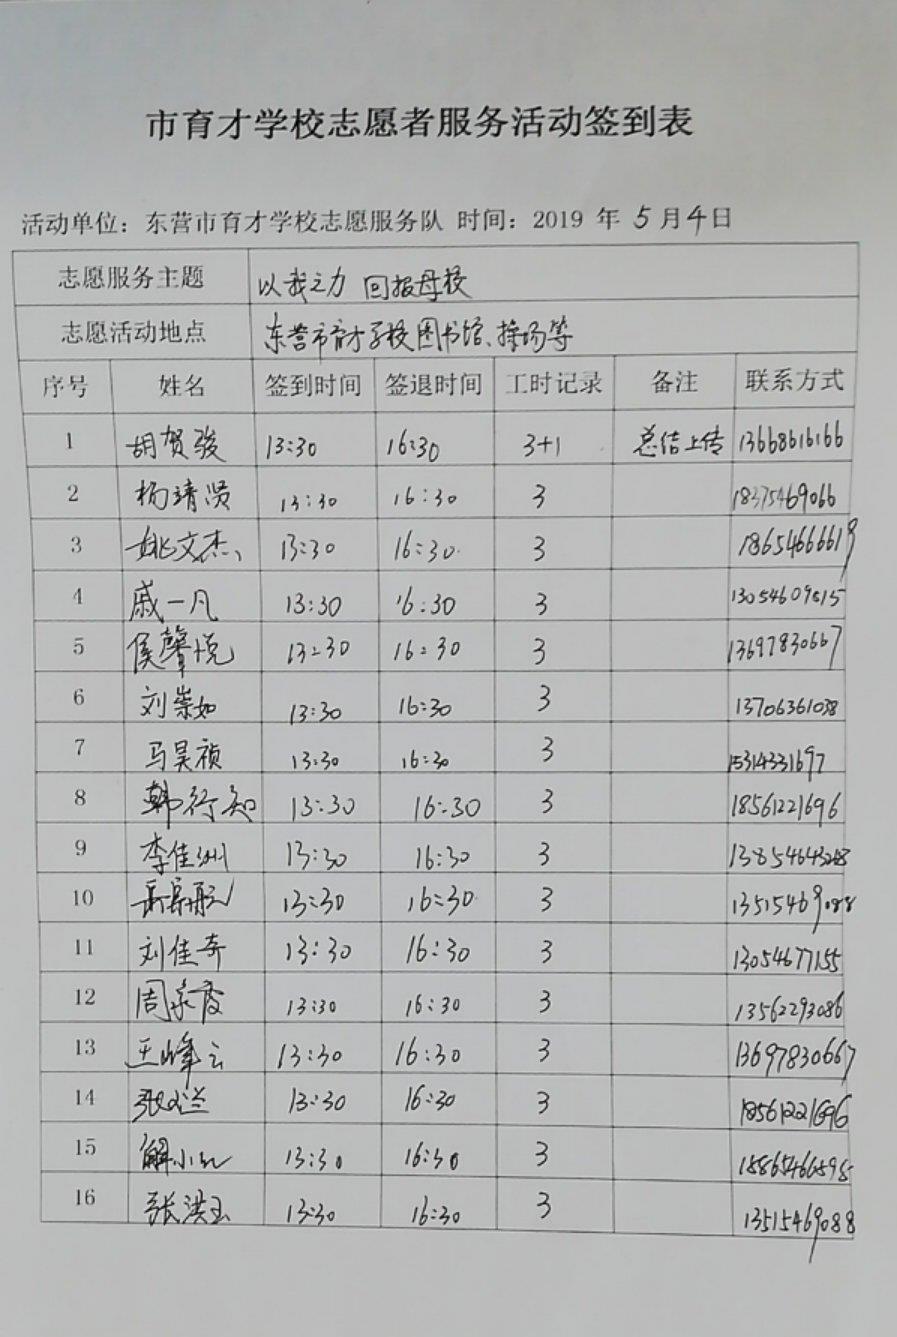 市育才学校志愿者服务活动签到表
活动单位：东营市育才学校志愿服务队 时间：2019 年 5 月 4 日
志愿服务主题 以我之力 回报母校
志愿活动地点 东营市育才学校图书馆、操场等
序号 姓名 签到时间 签退时间 工时记录 备注 联系方式
1 胡贺骏 13:30 16:30 3+1 总结上传 13668616166
2 杨靖贤 13:30 16:30 3 18375469066
3 姚文杰 13:30 16:30 3 18654666619
4 戚一凡 13:30 16:30 3
5 侯馨悦 13:30 16:30 3 13697830667
6 刘崇如 13:30 16:30 3 13706361038
7 马昊祯 13:30 16:30 3 15314331697
8 韩行知 13:30 16:30 3 18561221696
9 李佳洲 13:30 16:30 3
10 13:30 16:30 3 13515469088
11 刘佳奇 13:30 16:30 3 13054677155
12 周家霞 13:30 16:30 3 13562293086
13 王峰云 13:30 16:30 3 13697830667
14 13:30 16:30 3 18561221696
15 解小红 13:30 16:30 3
16 张洪玉 13:30 16:30 3 13515469088